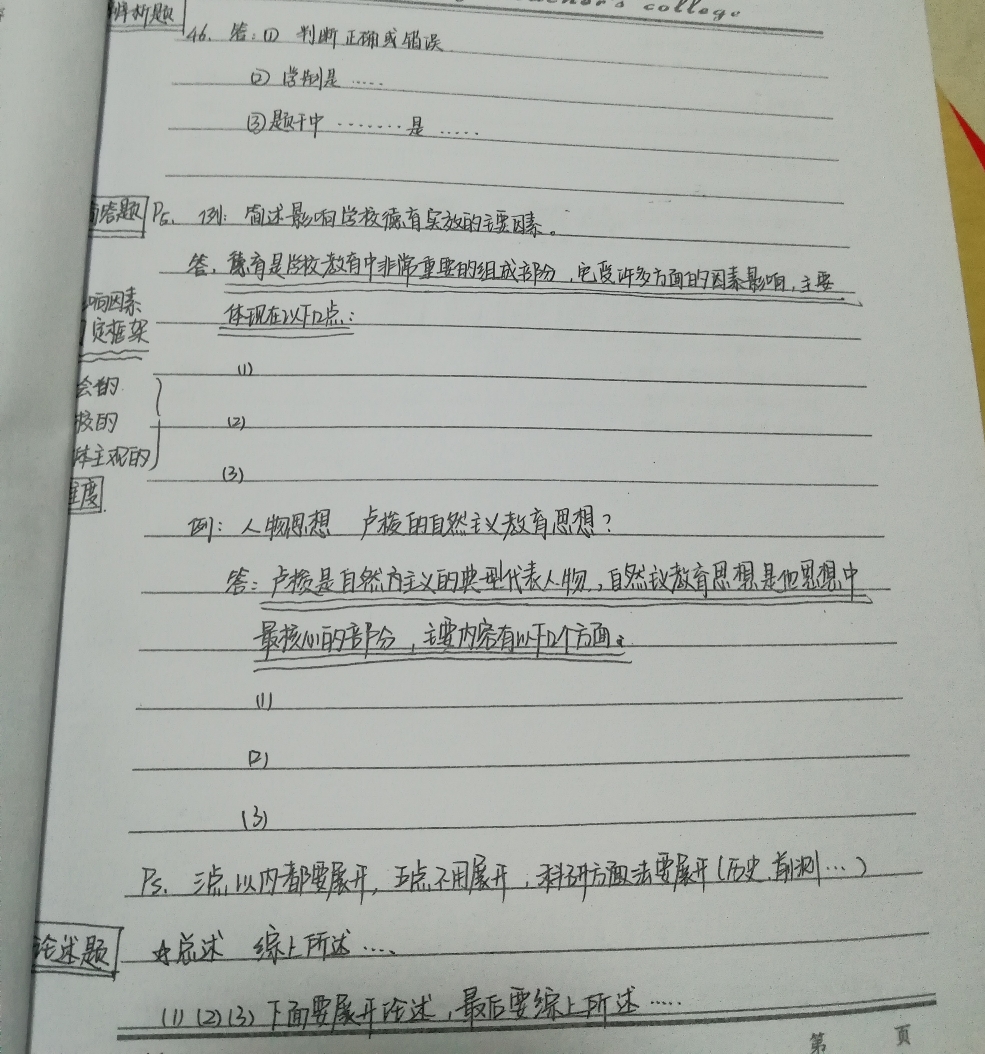 辨析题
46. 答:(1) 判断正确或错误
(2) 学制是 ……
(3) 题干中 ……… 是 ……
简答题 Ps. 例: 简述影响学校德育实效的主要因素。
答. 德育是学校教育中非常重要的组成部分,它受许多方面的因素影响,主要
响因素
体现在以下几点:
定框架
(1)
会的
校的 (2)
体主观的 (3)
维度
例: 人物思想 卢梭的自然主义教育思想?
答: 卢梭是自然主义的典型代表人物,自然主义教育思想是他思想中
最核心的部分,主要内容有以下几个方面。
(1)
(2)
(3)
Ps. 三点以内都要展开,五点不用展开,科研方法要展开(历史.前测…)
论述题 ☆总述 综上所述 ……
(1) (2) (3) 下面要展开论述,最后要综上所述 ……
college
第 頁